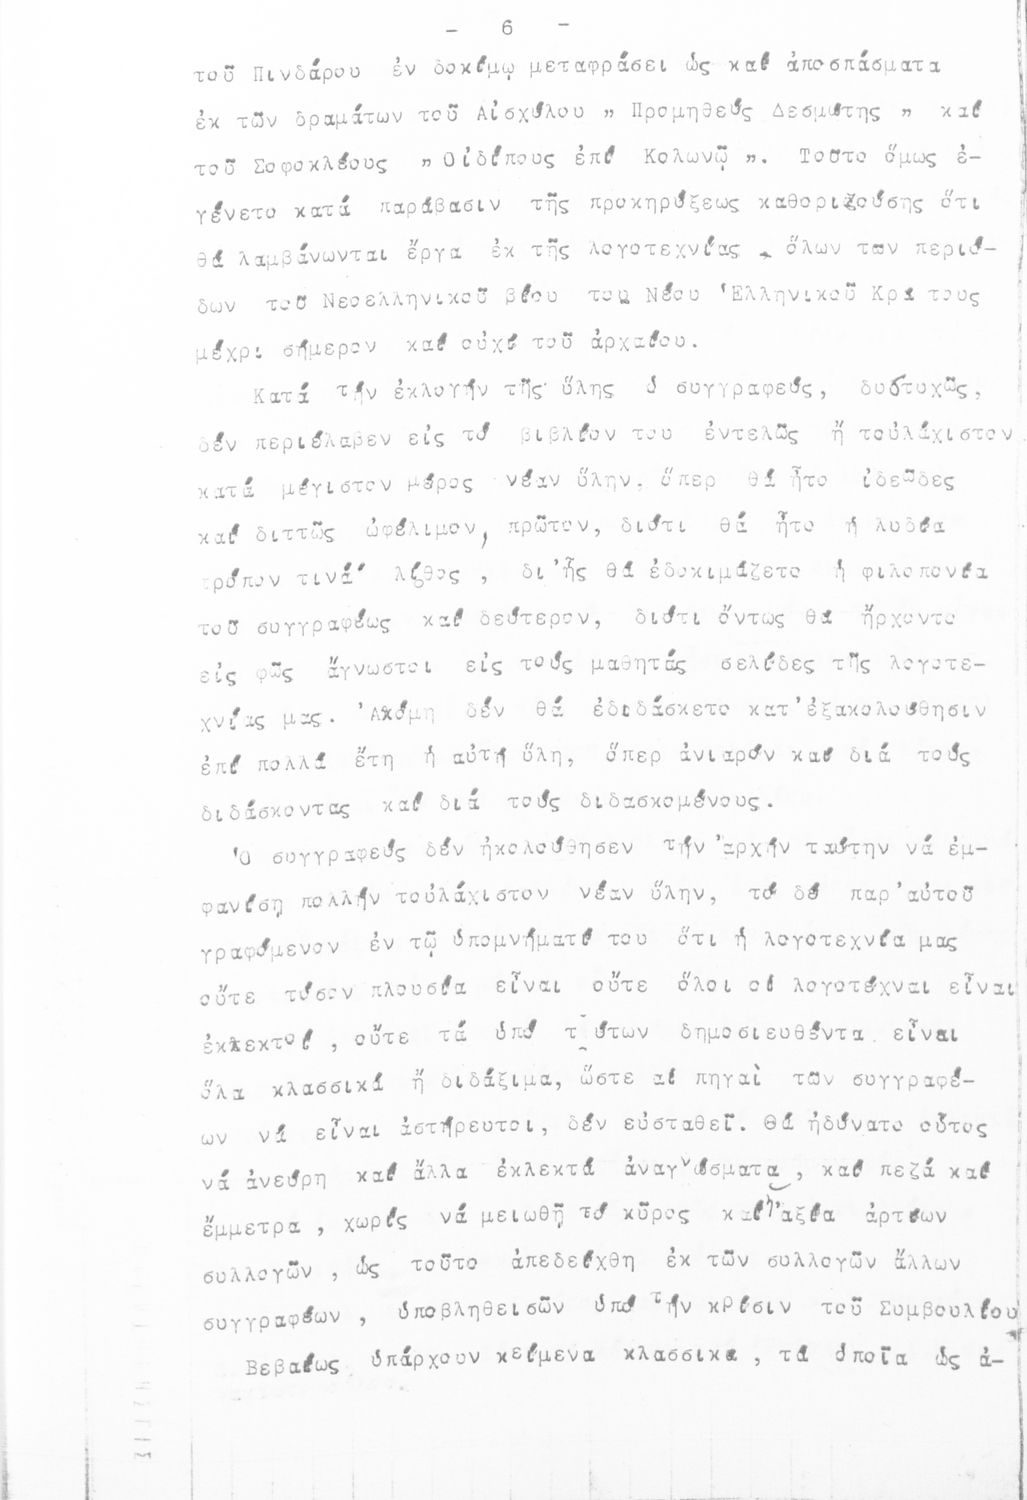 - 6 -
τοῦ Πινδάρου ἐν δοκίμῳ μεταφράσει ὡς καί ἀποσπάσματα
ἐκ τῶν δραμάτων τοῦ Αἰσχύλου „ Προμηθεύς Δεσμώτης „ καί
τοῦ Σοφοκλέους „ Οἰδίπους ἐπί Κολωνῷ „. Τοῦτο ὅμως ἐ-
γένετο κατά παράβασιν τῆς προκηρύξεως καθοριζούσης ὅτι
θά λαμβάνωνται ἔργα ἐκ τῆς λογοτεχνίας ὅλων των περιό-
δων τοῦ Νεοελληνικοῦ βίου του Νέου Ἑλληνικοῦ Κράτους
μέχρι σήμερον καί οὐχί τοῦ ἀρχαίου.
Κατά τήν ἐκλογήν τῆς ὕλης ὁ συγγραφεύς, δυστυχῶς,
δέν περιέλαβεν εἰς τό βιβλίον του ἐντελῶς ἤ τοὐλάχιστον
κατά μέγιστον μέρος νέαν ὕλην, ὅπερ θά ἦτο ἰδεῶδες
καί διττῶς ὠφέλιμον, πρῶτον, διότι θά ἦτο ἡ λυδία
τρόπον τινά λίθος , δι'ἧς θά ἐδοκιμάζετο ἡ φιλοπονία
τοῦ συγγραφέως καί δεύτερον, διότι ὄντως θά ἤρχοντο
εἰς φῶς ἄγνωστοι εἰς τούς μαθητάς σελίδες τῆς λογοτε-
χνίας μας. Ἀκόμη δέν θά ἐδιδάσκετο κατ'ἐξακολούθησιν
ἐπί πολλά ἔτη ἡ αὐτή ὕλη, ὅπερ ἀνιαρόν καί διά τούς
διδάσκοντας καί διά τούς διδασκομένους.
Ὁ συγγραφεύς δέν ἠκολούθησεν τήν ἀρχήν ταύτην νά ἐμ-
φανίσῃ πολλήν τοὐλάχιστον νέαν ὕλην, τό δέ παρ'αὐτοῦ
γραφόμενον ἐν τῷ ὑπομνήματί του ὅτι ἡ λογοτεχνία μας
οὔτε τόσον πλουσία εἶναι οὔτε ὅλοι οἱ λογοτέχναι εἶναι
ἐκλεκτοί , οὔτε τά ὑπό τούτων δημοσιευθέντα εἶναι
ὅλα κλασσικά ἤ διδάξιμα, ὥστε αἱ πηγαὶ των συγγραφέ-
ων νά εἶναι ἀστήρευτοι, δέν εὐσταθεῖ. Θά ἠδύνατο οὗτος
νά ἀνεύρη καί ἄλλα ἐκλεκτά ἀναγνώσματα , καί πεζά καί
ἔμμετρα , χωρίς νά μειωθῇ τό κῦρος καί ἡ ἀξία ἀρτίων
συλλογῶν , ὡς τοῦτο ἀπεδείχθη ἐκ τῶν συλλογῶν ἄλλων
συγγραφέων , ὑποβληθεισῶν ὑπό τήν κρίσιν τοῦ Συμβουλίου
Βεβαίως ὑπάρχουν κείμενα κλασσικα , τά ὁποῖα ὡς ἀ-